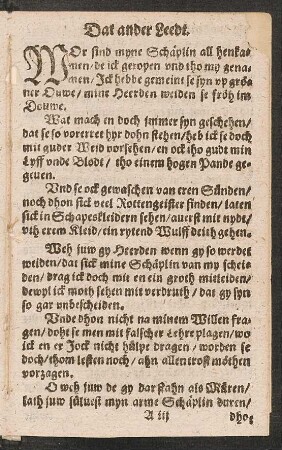 Dat ander Leedt.
WOr sind myne Schäplin all henka-
men/de ick geropen vnd tho my gena-
men/Ick hebbe gemeint se syn vp grö-
ner Ouwe/mine Heerden weiden se fröh im
Douwe.
Wat mach en doch jmmer syn geschehen/
dat se so vorerret hyr dohn stehen/heb ick se doch
mit guder Weid vorsehen/en ock tho gudt min
Lyff vnde Blodt/ tho einem hogen Pande ge-
geuen.
Vnd se ock gewaschen van eren Sünden/
noch dhon sick veel Rottengeister finden/laten
sick in Schapeskleidern sehen/auerst mit nyde/
vth erem Kleid/ein rytend Wulff deith gehen.
Weh juw gy Heerden wenn gy so werdet
weiden/dat sick mine Schäplin van my schei-
den/drag ick doch mit en ein groth mitleiden/
dewyl ick moth sehen mit verdruth/dat gy syn
so gar vnbescheiden.
Vnde dhon nicht na minem Willen fra-
gen/doht se men mit falscher Lehre plagen/wo
ick en er Jock nicht hülpe dragen/worden se
doch/thom lesten noch/ahn allen trost möthen
vorzagen.
O weh juw de gy dar stahn als Mären/
lath juw sülvest myn arme Schäplin duren/
A iij dho